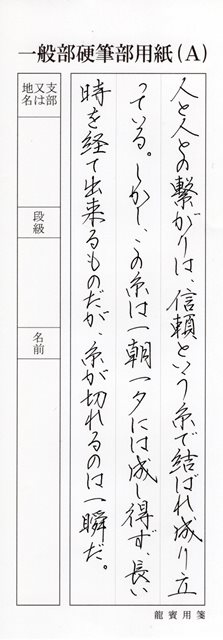 一般部硬筆部用紙(A)
人と人との繋がりは、信頼という糸で結ばれ成り立
っている。しかし、この糸は一朝一夕には成し得ず、長い
時を経て出来るものだが、糸が切れるのは一瞬だ。
支部又は地名
段級
名前
龍賓用箋